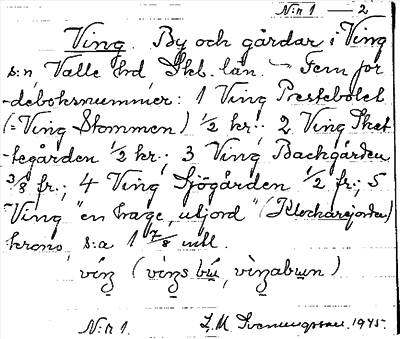 N:r 1 — 2
Ving. By och gårdar i Ving
s:n Valle hd Skb. län. — Fem jor
-deboksnummer: 1 Ving Prestebolet
(= Ving Stommen) 1/2 kr.; 2 Ving Sket-
tegården 1/2 kr.; 3 Ving Backgården
3/8 fr.; 4 Ving Sjögården 1/2 fr.; 5
Ving "en hage, utjord" (Klockarejorden)
krono, s:a 1 7/8 mtl.
víŋ (vìŋs bú, vìŋabun)
N:r 1. L. M. Svenungsson. 1945.